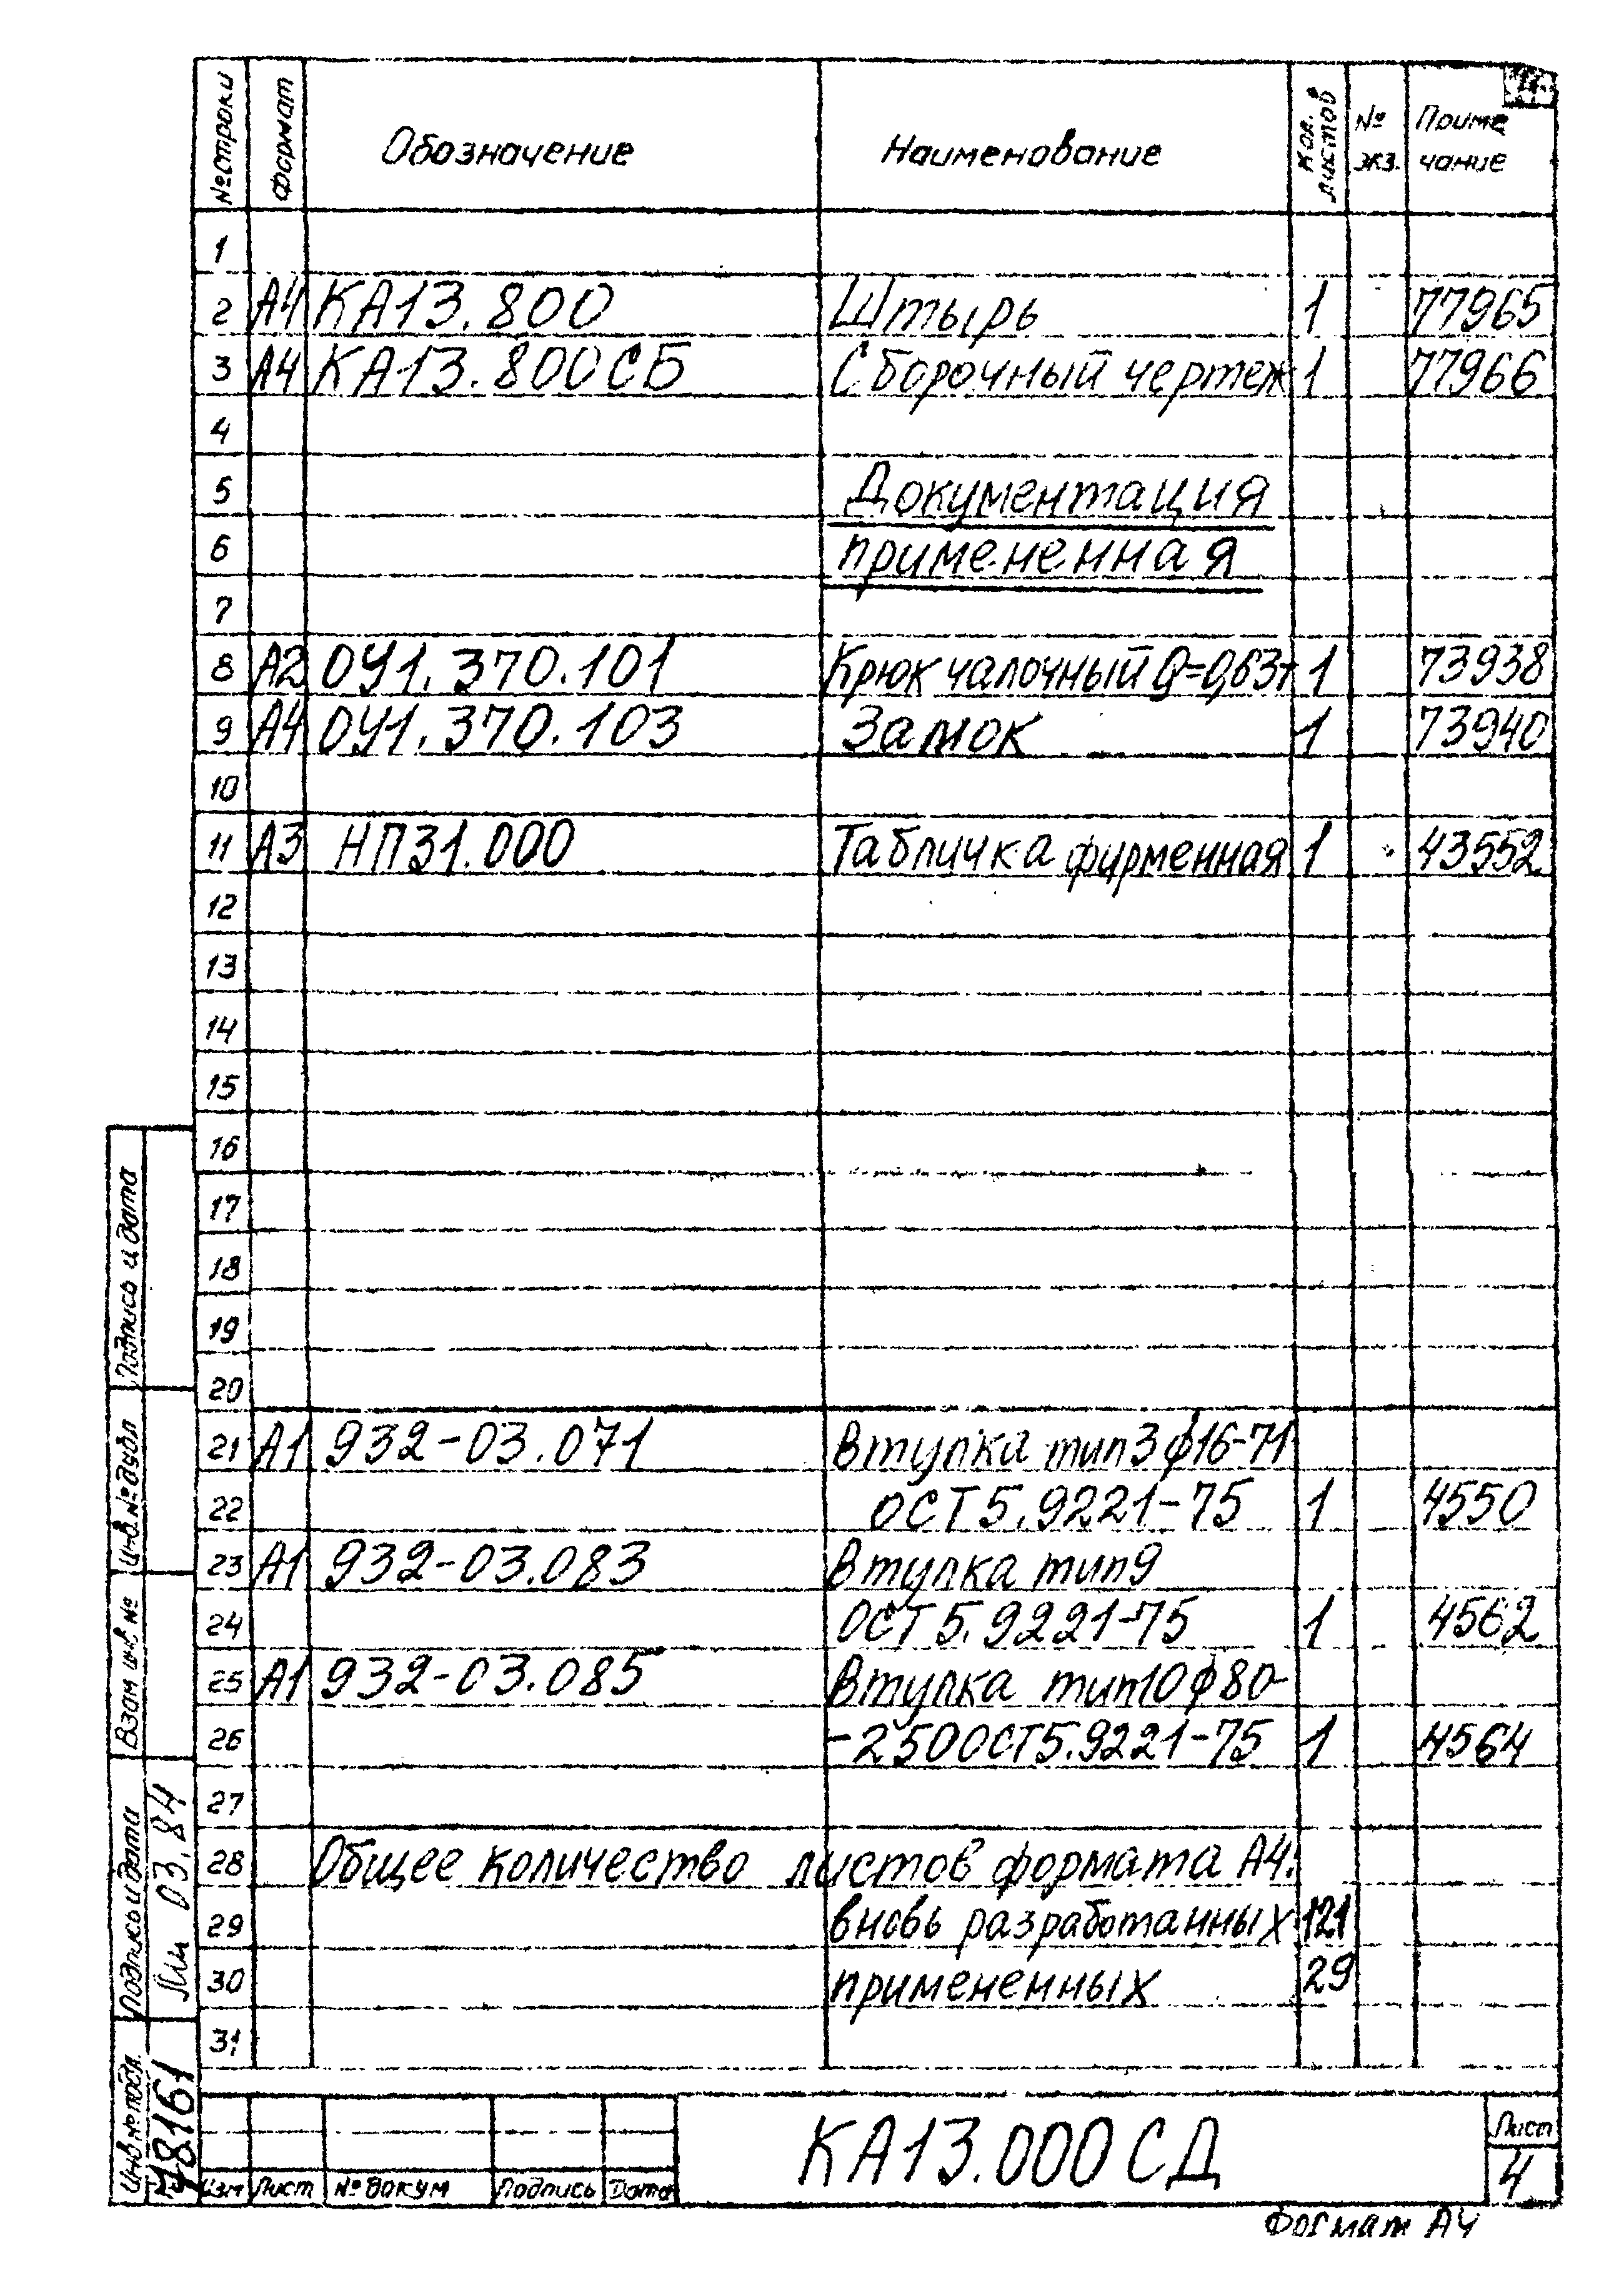 № строки Формат Обозначение Наименование Кол. листов № экз. Приме
чание
1
2 А4 КА13.800 Штырь 1 77965
3 А4 КА13.800СБ Сборочный чертеж 1 77966
4
5 Документация
6 примененная
7
8 А2 ОУ1.370.101 Крюк чалочный Q=0,63т 1 73938
9 А4 ОУ1.370.103 Замок 1 73940
10
11 А3 НП31.000 Табличка фирменная 1 43552
12
13
14
15
16
17
18
19
20
21 А1 932-03.071 Втулка тип3 ф16-71
22 ОСТ5.9221-75 1 4550
23 А1 932-03.083 Втулка тип9
24 ОСТ5.9221-75 1 4562
25 А1 932-03.085 Втулка тип10 ф80-
26 -250 ОСТ5.9221-75 1 4564
27
28 Общее количество листов формата А4:
29 вновь разработанных 121
30 примененных 29
31
Подпись и дата
Инв. № дубл
Взам инв №
Подпись и дата 03.84
Инв № подл. 78161
Изм Лист № докум Подпись Дата
КА13.000 СД
Лист
4
Формат А4